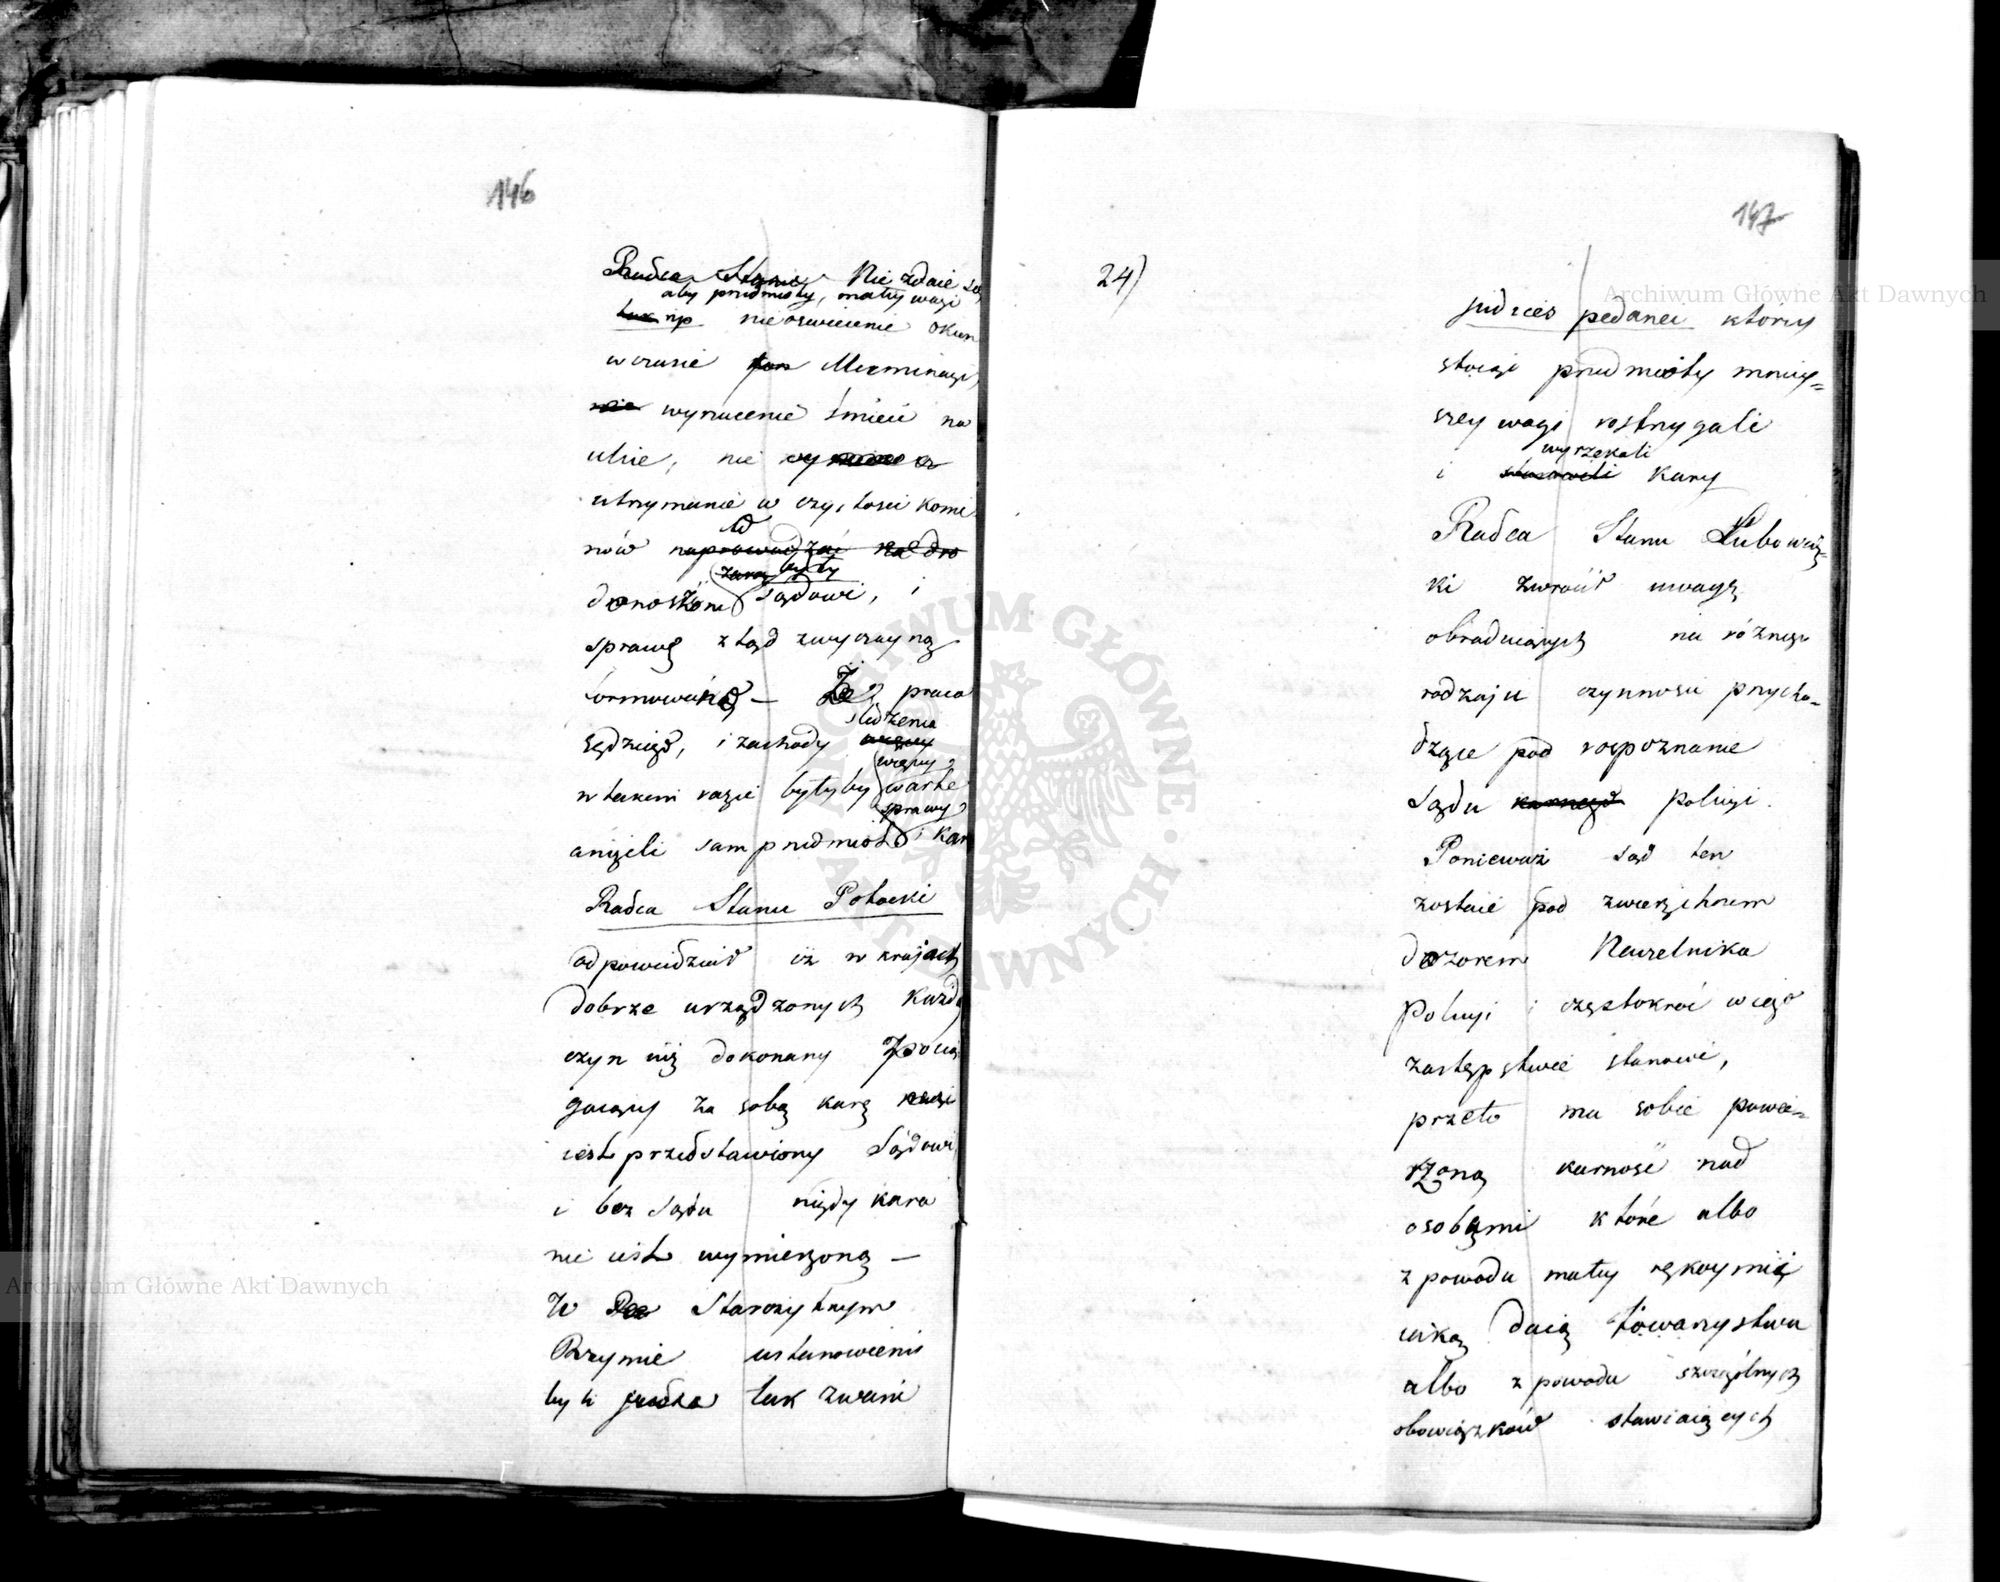 146
Radca Stanu Nie zdaie się
aby przedmioty, małey wagi
tak np nieoswiecenie okien
w czasie Illuminacyi,
nie wyrzucenie śmieci na
ulice, nie
utrzymanie w czystości komi
nów
były
donoszone Sądowi, i
sprawę ztąd zwyczayną
formowano — Że praca
śledzenia
sędziego, i zachody
więcey
w takim razie byłyby warte
sprawy
aniżeli sam przedmiot i kara
Radca Stanu Potocki
odpowiedział iż w krajach
dobrze urządzonych każdy
czyn iuż dokonany pocią
gaiący za sobą karę
iest przedstawiony Sądowi
i bez Sądu nigdy kara
nie iest wymierzoną —
W Starożytnym
Rzymie ustanowieni
byli tak zwani
147
24)
judices pedanei którzy
stoiąc przedmioty mniey=
szey wagi rostrzygali
wyrzekali
i stanowili kary
Radca Stanu Lubowidz=
ki zwrócił uwagę
obraduiących na różnego
rodzaju czynnosci przycho=
dzące pod rozpoznanie
Sądu karnego Policyi.
Ponieważ sąd ten
zostaie pod zwierzchnim
dozorem Naczelnika
Policyi i częstokroć w iego
zastępstwie stanowi,
przeto ma sobie powie=
rzoną karność nad
osobami które albo
z powodu małey rękoymii
iaką daią towarzystwu
albo z powodu szczególnych
obowiązków stawiaiących
Archiwum Główne Akt Dawnych
Archiwum Główne Akt Dawnych
ARCHIWUM GŁÓWNE AKT DAWNYCH